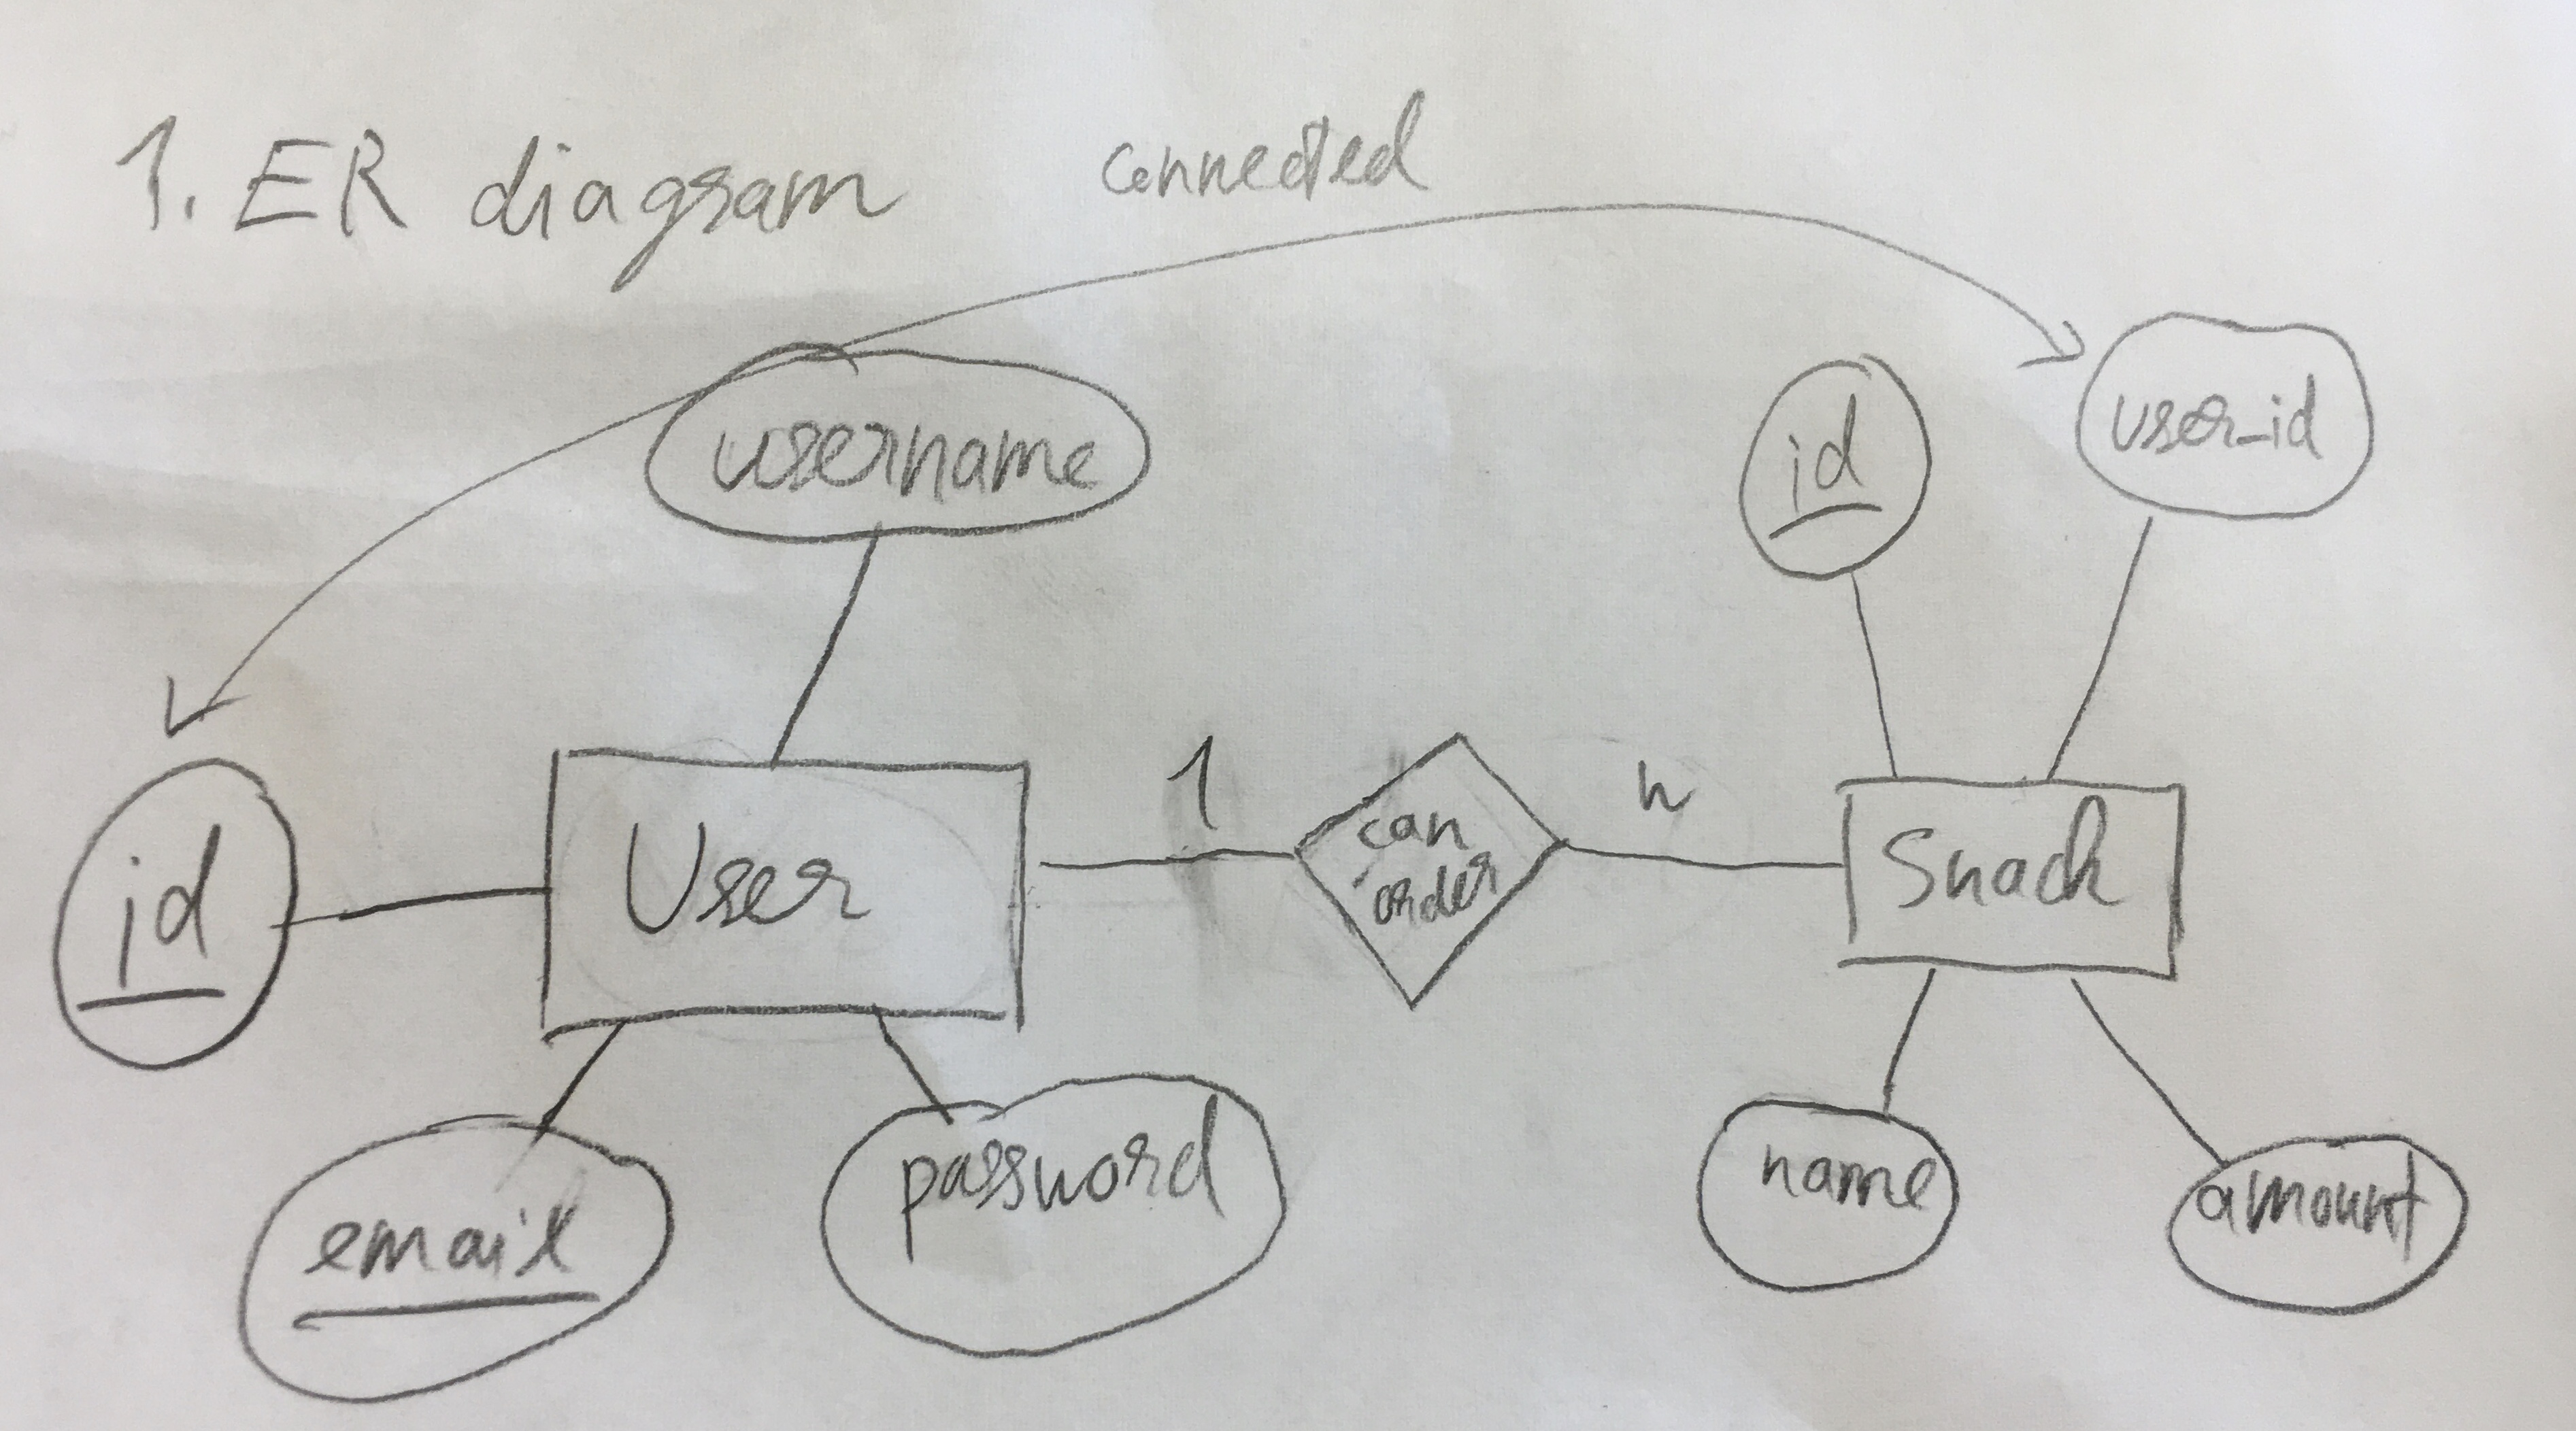 1. ER diagram
connected
username
id
user_id
id
User
1
can
order
n
Snack
email
password
name
amount